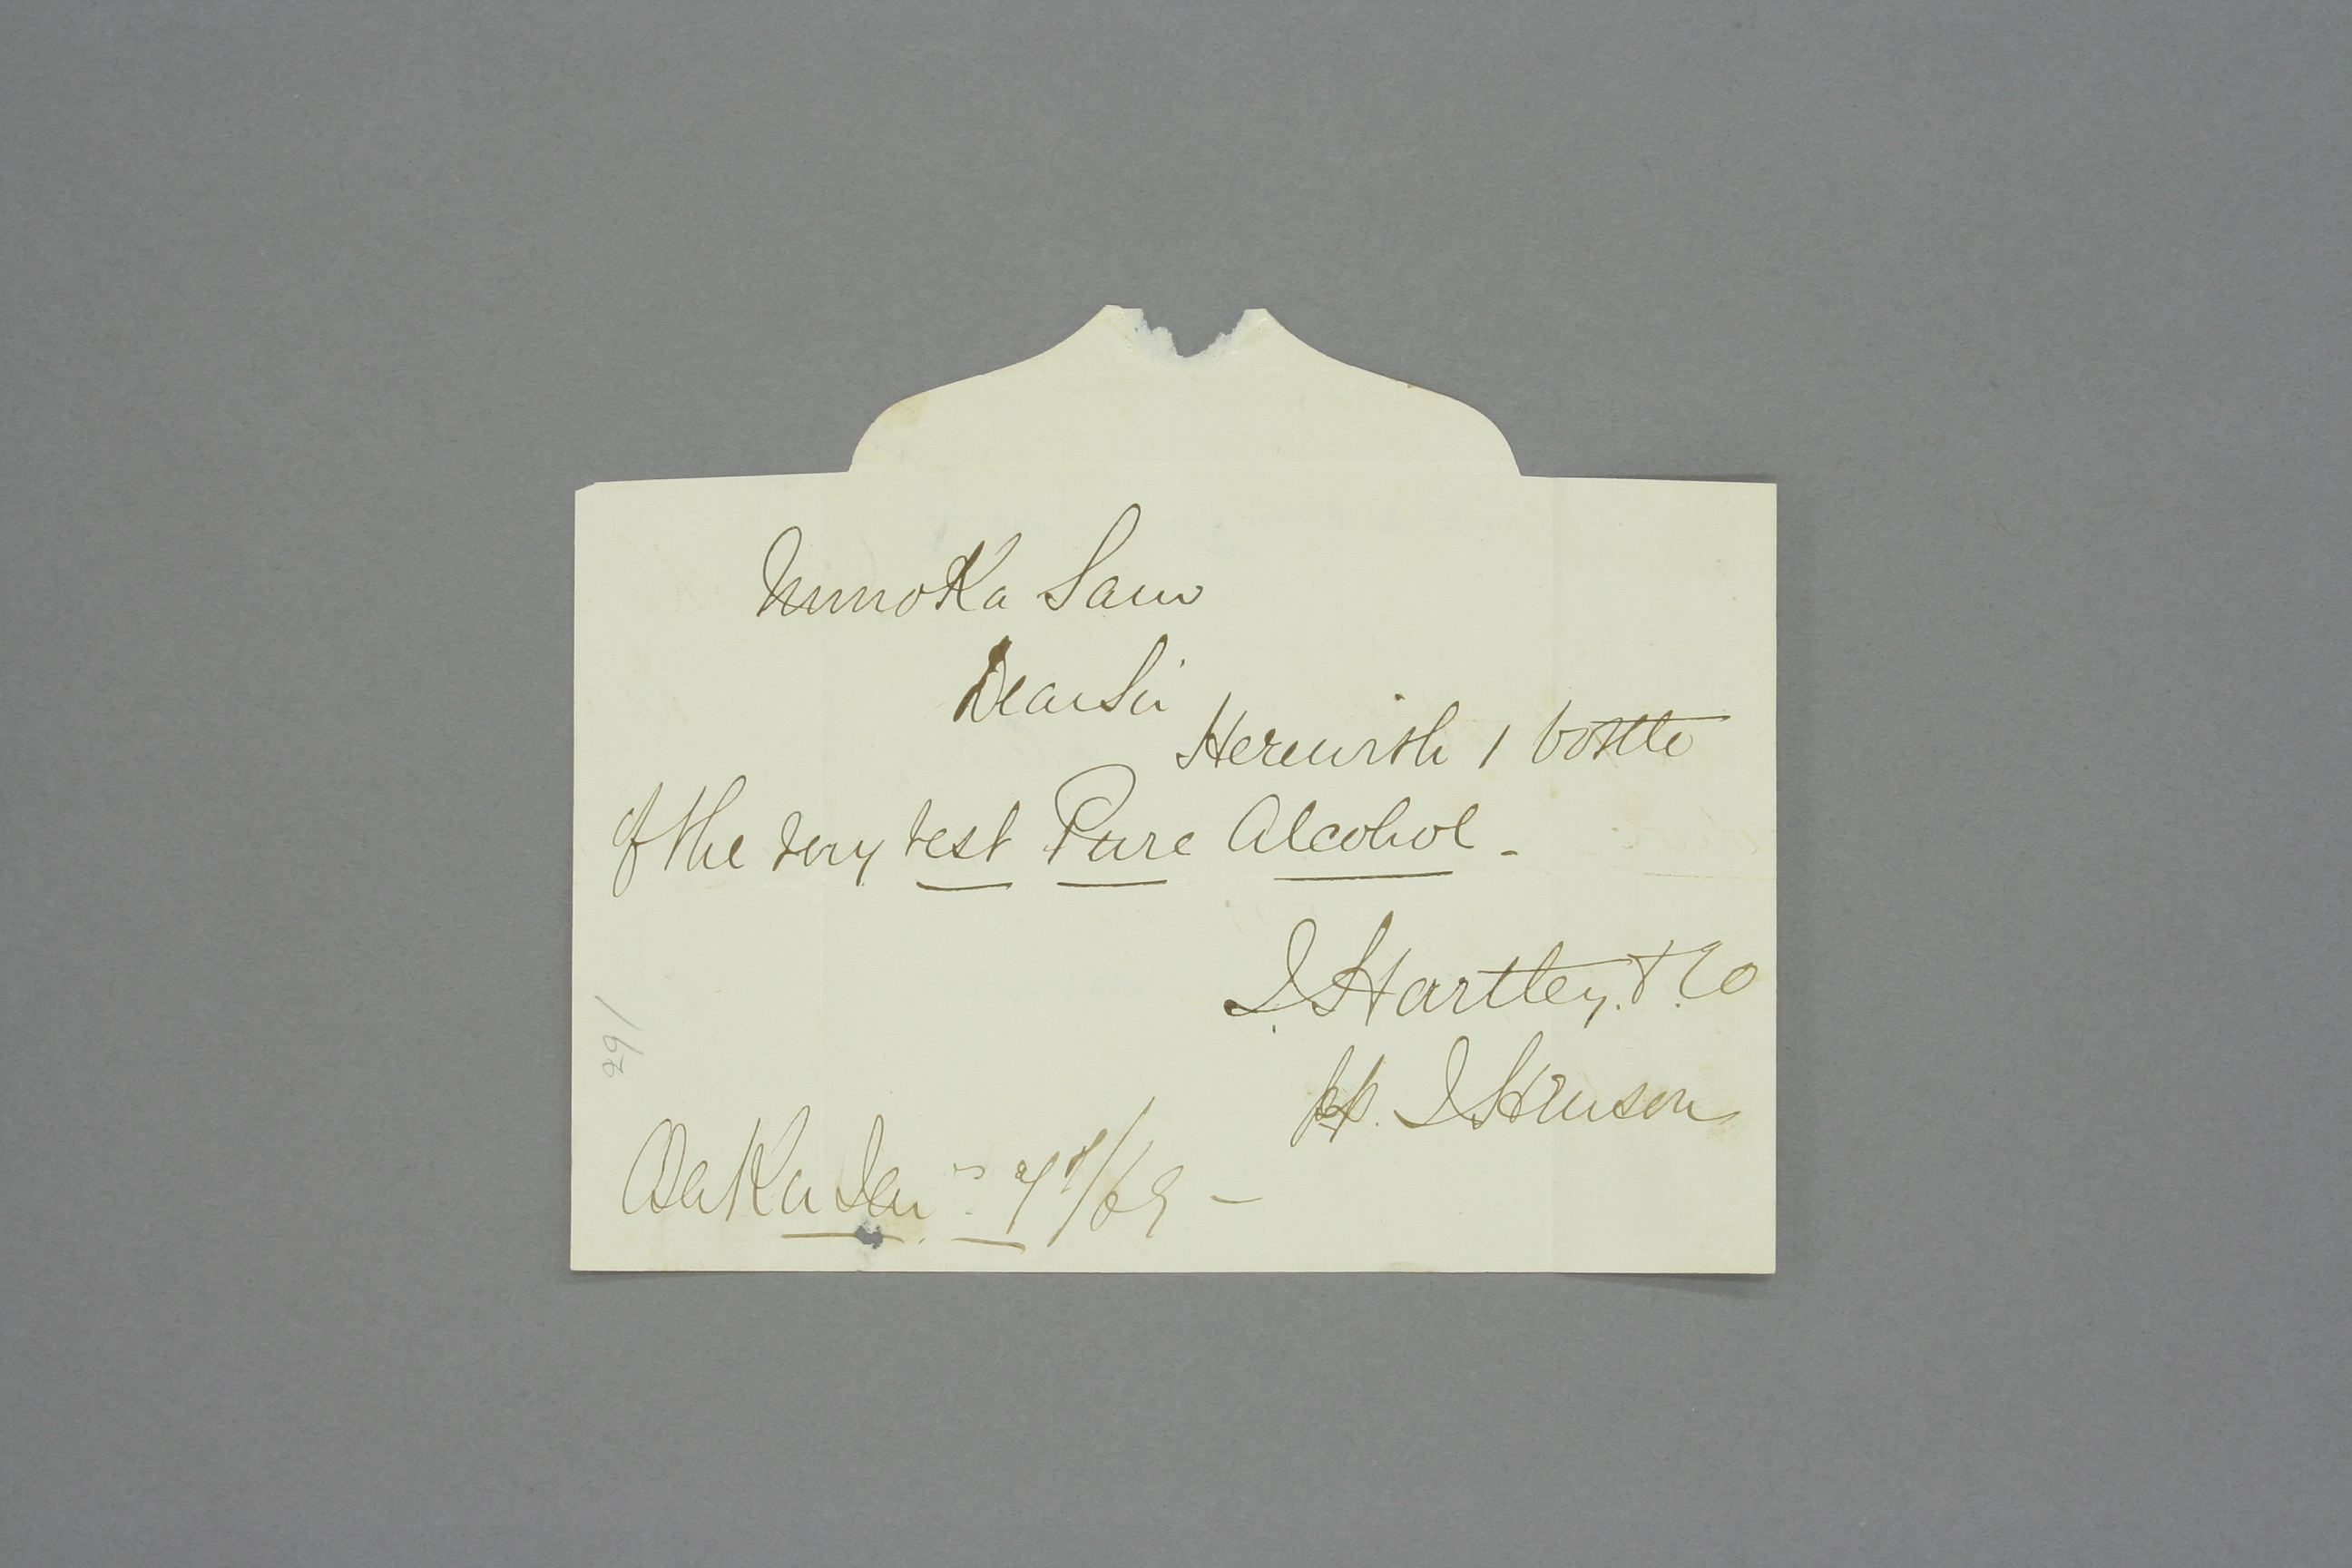 Mimoka Sam
Dear Sir
Herewith 1 bottle
of the very best Pure Alcohol.
J. Hartley. & Co
pp. J. Henson
Osaka Jan
/69 -
29/